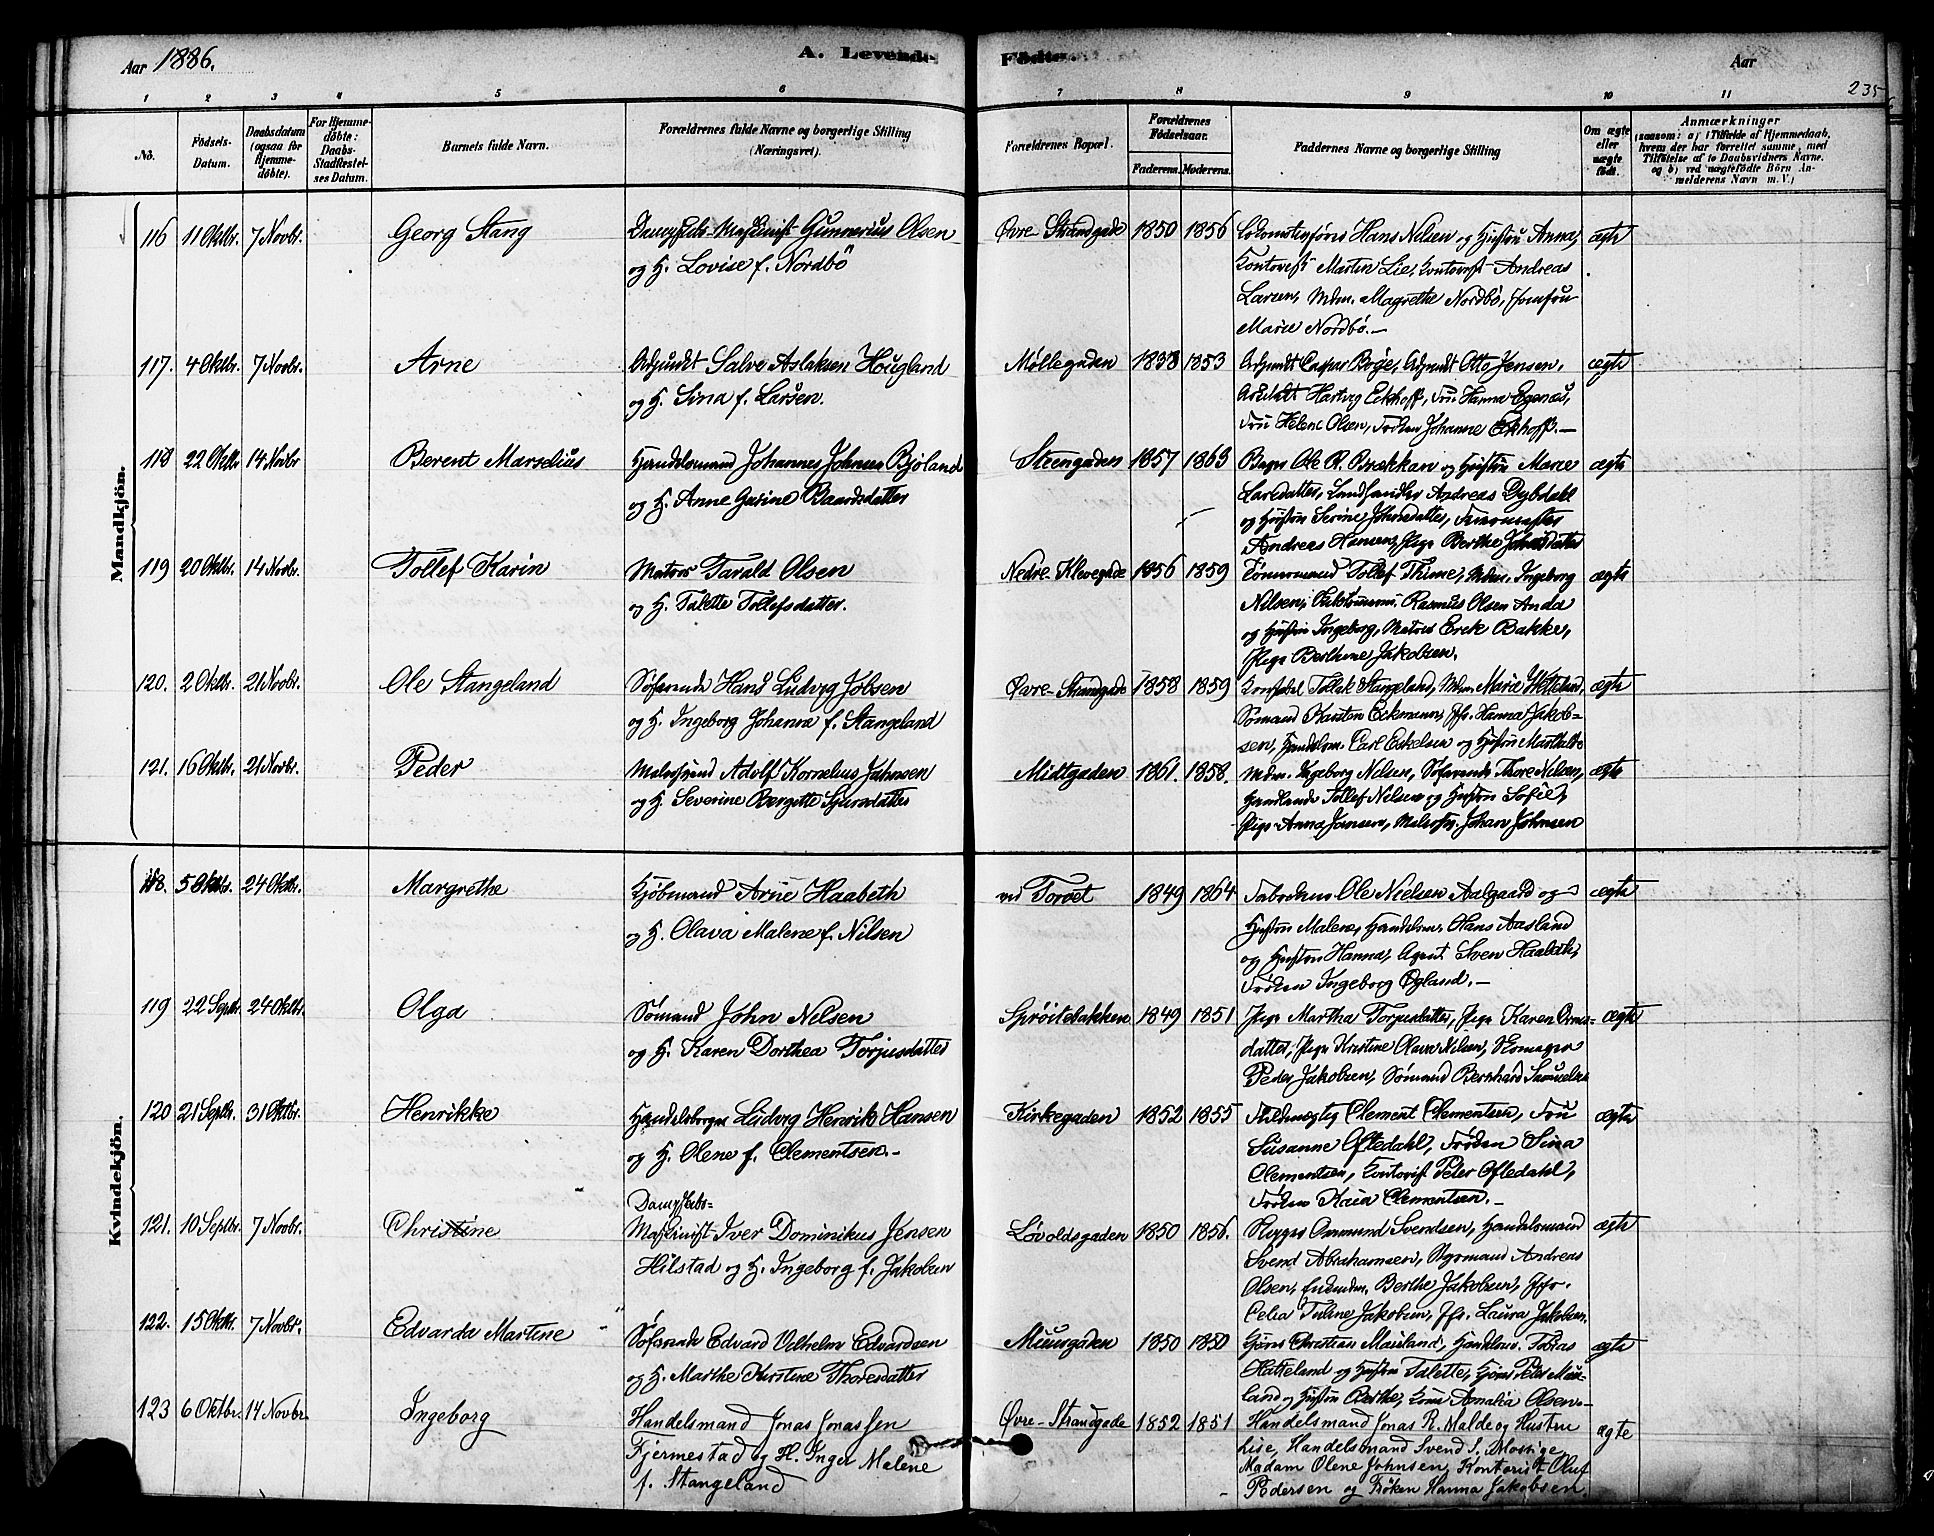 Aar 1886.
A. Levende
Födte.
Aar
235
1 2 3 4 5 6 7 8 9 10 11
No.
Födsels-Datum.
Daabsdatum (ogsaa for Hjemme-döbte).
For Hjemme-döbte: Daabs-Stadfæstel-ses Datum.
Barnets fulde Navn.
Forældrenes fulde Navne og borgerlige Stilling (Næringsvei).
Forældrenes Bopæl.
Forældrenes Födselsaar.
Faderens.
Moderens.
Faddernes Navne og borgerlige Stilling
Om ægte eller uægte födt.
Anmærkninger
(saasom: a) i Tilfælde af Hjemmedaab,
hvem der har forrettet samme, med
Tilföielse af to Daabsvidners Navne.
og b) ved uægtefödte Börn An-
melderens Navn m. V.)
Mandkjön.
116 11 Oktbr. 7 Novbr. Georg Stang Gunnerius Olsen Øvre Strandgade 1850 1856 Hans Nilsen og Hustru Anna, ægte
og H. Lovise f. Nordbö Kontorist Martin Lie, Kontorist Andreas
Larsen, Mdm. Magrethe Nordbö, Jomfru
Marie Nordbö.
117. 4 Oktbr. 7 Novbr. Arne Adjunkt Salve Aslaksen Hougland Møllegaden 1838 1853 Adjunkt Caspar Berge, Adjunkt Otto Jensen, ægte
og H. Sina f. Larsen. Arkitekt Hartvig Eckhoff, Fru Hanna Egenæs,
Fru Helene Olsen, Frøken Johanne Eckhoff.
118 22 Oktbr. 14 Novbr Berent Marselius Handelsmand Johannes Johnsen Bjöland Steengaden 1857 1863 Bager Ole R. Brækkan og Hustru Marie ægte
og H. Anne Gurine Baardsdatter Larsdatter, Landhandler Andreas Dybdahl
og Hustru Serine Johnsdatter,
Andreas Hansen, Pige Berthe
119 20 Oktbr. 14 Novbr. Tollef Karin Matros Tarald Olsen Nedre Klevegade 1856 1859 Tømmermand Tollef Thime, Mdm. Ingeborg ægte
og H. Talette Tollefsdatter. Nilsen, Rasmus Olsen Anda
og Hustru Ingeborg, Matros Erik Bakke,
Pige Berthine Jakobsen.
120. 2 Oktbr. 21 Novbr. Ole Stangeland Søfarende Hans Ludvig Jobsen Øvre-Strandgade 1858 1859 Konstabel Tollak Stangeland, Mdm. Marie ægte
og H. Ingeborg Johanne f. Stangeland Sømand Karsten Eekmann, Jfr. Hanna Jakob-
sen, Handelsm. Carl Eskelsen og Hustru
121. 16 Oktbr. 21 Novbr. Peder Malersvend Adolf Kornelius Johnsen Midtgaden 1861. 1858. Mdm. Ingeborg Nilsen, Søfarende Thore Nilsen, ægte
og H. Severine Bergitte Sjursdatter Handlende Tollef Nilsen og Hustru Sofie,
Pige Anna Jansen, Malersv. Johan Johnsen
Kvindekjön.
118. 5 Oktbr. 24 Oktbr. Margrethe Kjøbmand Arne Haabeth ved Torvet 1849 1864 Ole Nielsen Aalgaard og ægte
og H. Olava Malene f. Nilsen Hustru Malene, Handelsm. Hans Aasland
og Hustru Hanna, Agent Sven Haabeth,
Frøken Ingeborg Øgland.
119 22 Septbr. 24 Oktbr. Olga Sømand John Nilsen Sprøitebakken 1849 1851 Pige Martha Torjusdatter, Pige Karen ægte
og H. Karen Dorthea Torjusdatter datter, Pige Kristine Olava Nilsen, Skomager
Peder Jakobsen, Sømand Bernhard Samuelsen
120 21 Septbr. 31 Oktbr. Henrikke Handelsborger Ludvig Henrik Hansen Kirkegaden 1852 1855 Fuldmægtig Clement Clementsen, Fru ægte
og H. Olene f. Clementsen. Susanne Oftedahl, Frøken Sina
Clementsen, Kontorist Peter Oftedahl,
Frøken Kaia Clementsen.
Dampskibs-
121. 10 Septbr. 7 Novbr. Christine Maskinist Iver Dominikus Jensen Løvoldsgaden 1850 1856. Rygger Svendsen, Handelsmand ægte
Hilstad og H. Ingeborg f. Jakobsen Svend Abrahamsen, Styrmand Andreas
Olsen, Berthe Jakobsen, Jfr.
Celia Tuline Jakobsen, Jfr. Laura Jakobsen.
122. 15 Oktbr. 7 Novbr. Edvarda Martine Søfarende Edvard Vilhelm Edvardsen Muusgaden 1850 1850 Christian Mauland, Tobias ægte
og H. Marthe Kirstine Thoresdatter Hatteland og Hustru Talette, Peter Mau-
land og Hustru Berthe, Amalia Olsen.
123 6 Oktbr. 14 Novbr. Ingeborg Handelsmand Jonas Jonassen Øvre-Strandgade 1852 1851 Handelsmand Jonas R. Malde og Hustru ægte
Fjermestad og H. Inger Malene Lise, Handelsmand Svend S. Mossige,
f. Stangeland Madam Olene Johnsen, Kontorist Oluf
Pedersen og Frøken Hanna Jakobsen.